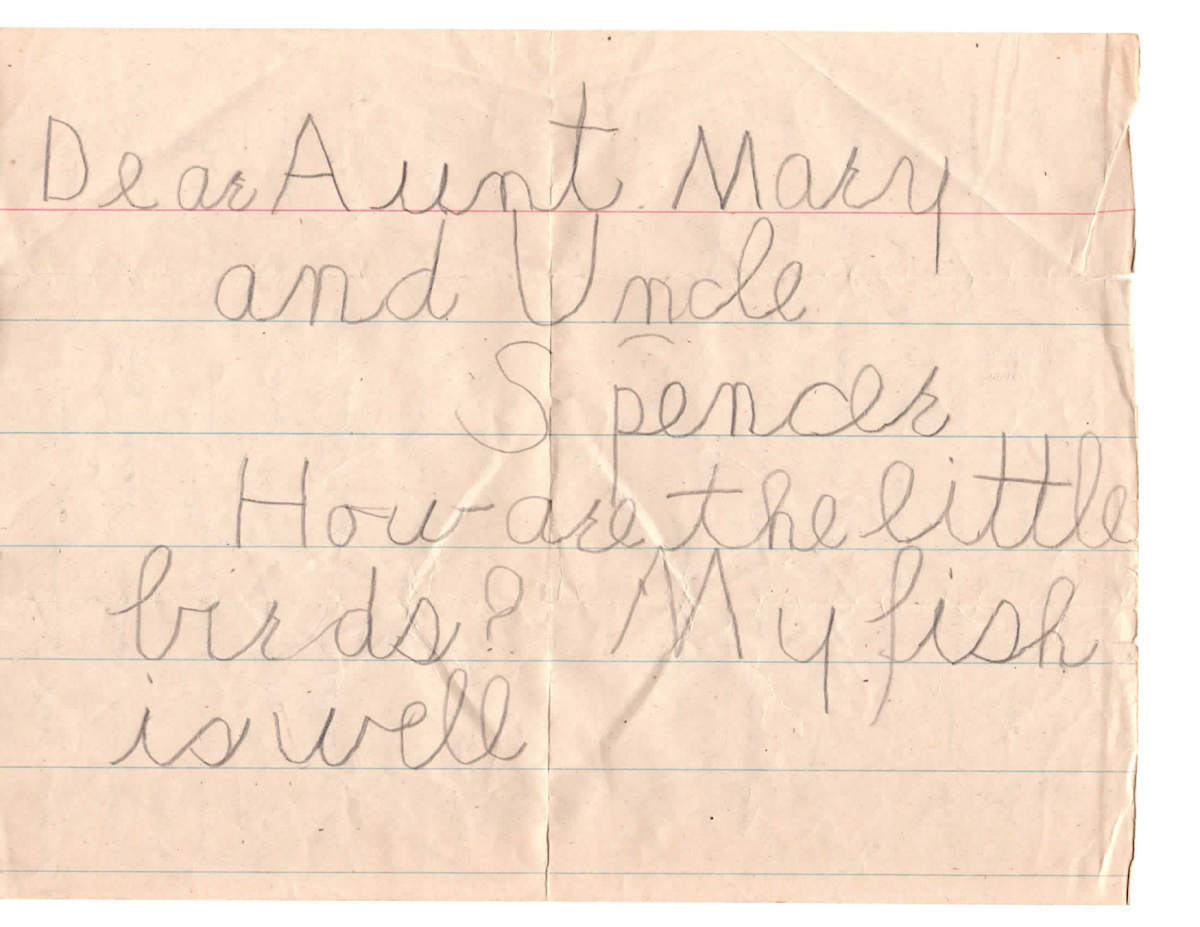 Dear Aunt Mary
and Uncle
Spencer
How are the little
birds? My fish
is well